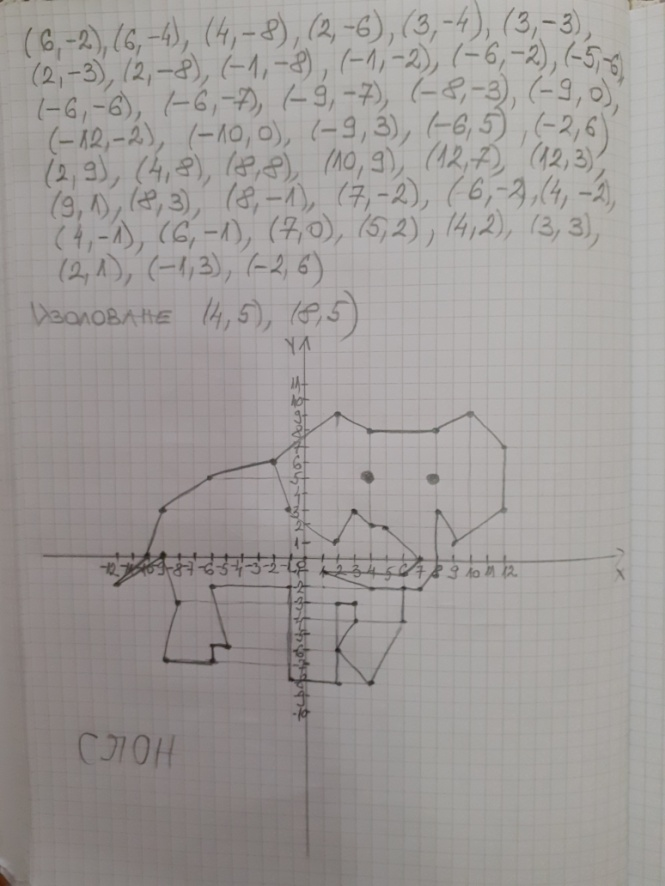 (6,-2), (6,-4), (4,-8), (2,-6), (3,-4), (3,-3),
(2,-3), (2,-8), (-1,-8), (-1,-2), (-6,-2), (-5,-6),
(-6,-6), (-6,-7), (-9,-7), (-8,-3), (-9,0),
(-12,-2), (-10,0), (-9,3), (-6,5), (-2,6)
(2,9), (4,8), (8,8), (10,9), (12,7), (12,3),
(9,1), (8,3), (8,-1), (7,-2), (-6,-2), (4,-2),
(4,-1), (6,-1), (7,0), (5,2), (4,2), (3,3),
(2,1), (-1,3), (-2,6)
ИЗОЛОВАНЕ (4,5), (8,5)
Y
11
10
9
8
7
6
5
4
3
2
1
-12 -11 -10 -9 -8 -7 -6 -5 -4 -3 -2 -1 0 1 2 3 4 5 6 7 8 9 10 11 12
X
-2
-3
-4
-5
-6
-7
-8
-9
-10
СЛОН